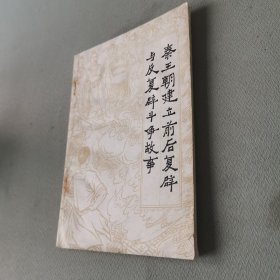 秦王朝建立前后复辟
与反复辟斗争故事